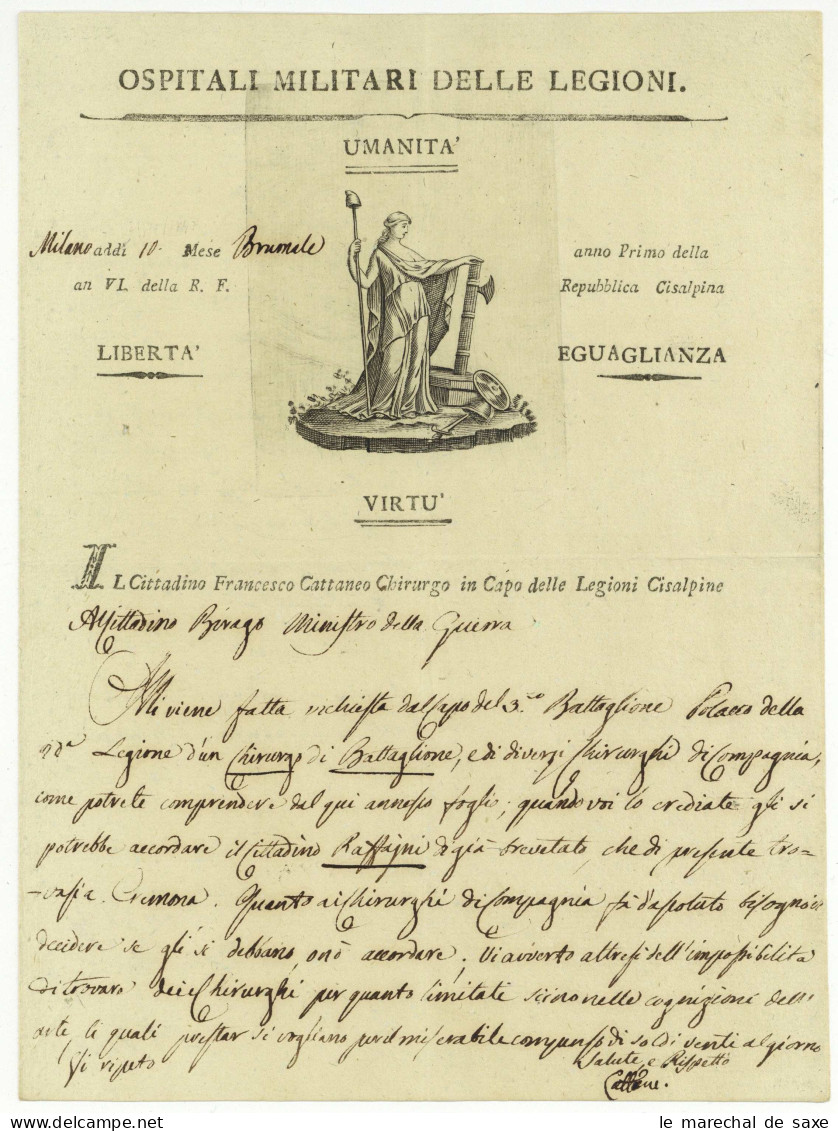 OSPITALI MILITARI DELLE LEGIONI.
UMANITA'
Milano addì 10. Mese Brumale
anno Primo della
an VI. della R. F.
Repubblica Cisalpina
LIBERTA'
EGUAGLIANZA
VIRTU'
IL Cittadino Francesco Cattaneo Chirurgo in Capo delle Legioni Cisalpine
Al Cittadino Birago Ministro della Guerra
Mi viene fatta richiesta dal Capo del 3.zo Battaglione Polacco della
2da Legione d'un Chirurgo di Battaglione, e di diversi Chirurghi di Compagnia,
come potrete comprendere dal qui annesso foglio; quando voi lo crediate gli si
potrebbe accordare il Cittadino Raffagni di già brevetato, che di presente tro=
=vasi a Cremona. Quanto ai Chirurghi di Compagnia fà d'assoluto bisogno il
decidere se gli si debbano, o nò accordare. Vi avverto altresì dell'impossibilità
di trovare dei Chirurghi per quanto limitate siino nelle cognizioni dell'
arte, li quali prestar si vogliano per il miserabile compenso di soldi venti al giorno
Vi ripeto
Salute, e Rispetto
Cattaneo.
le marechal de saxe